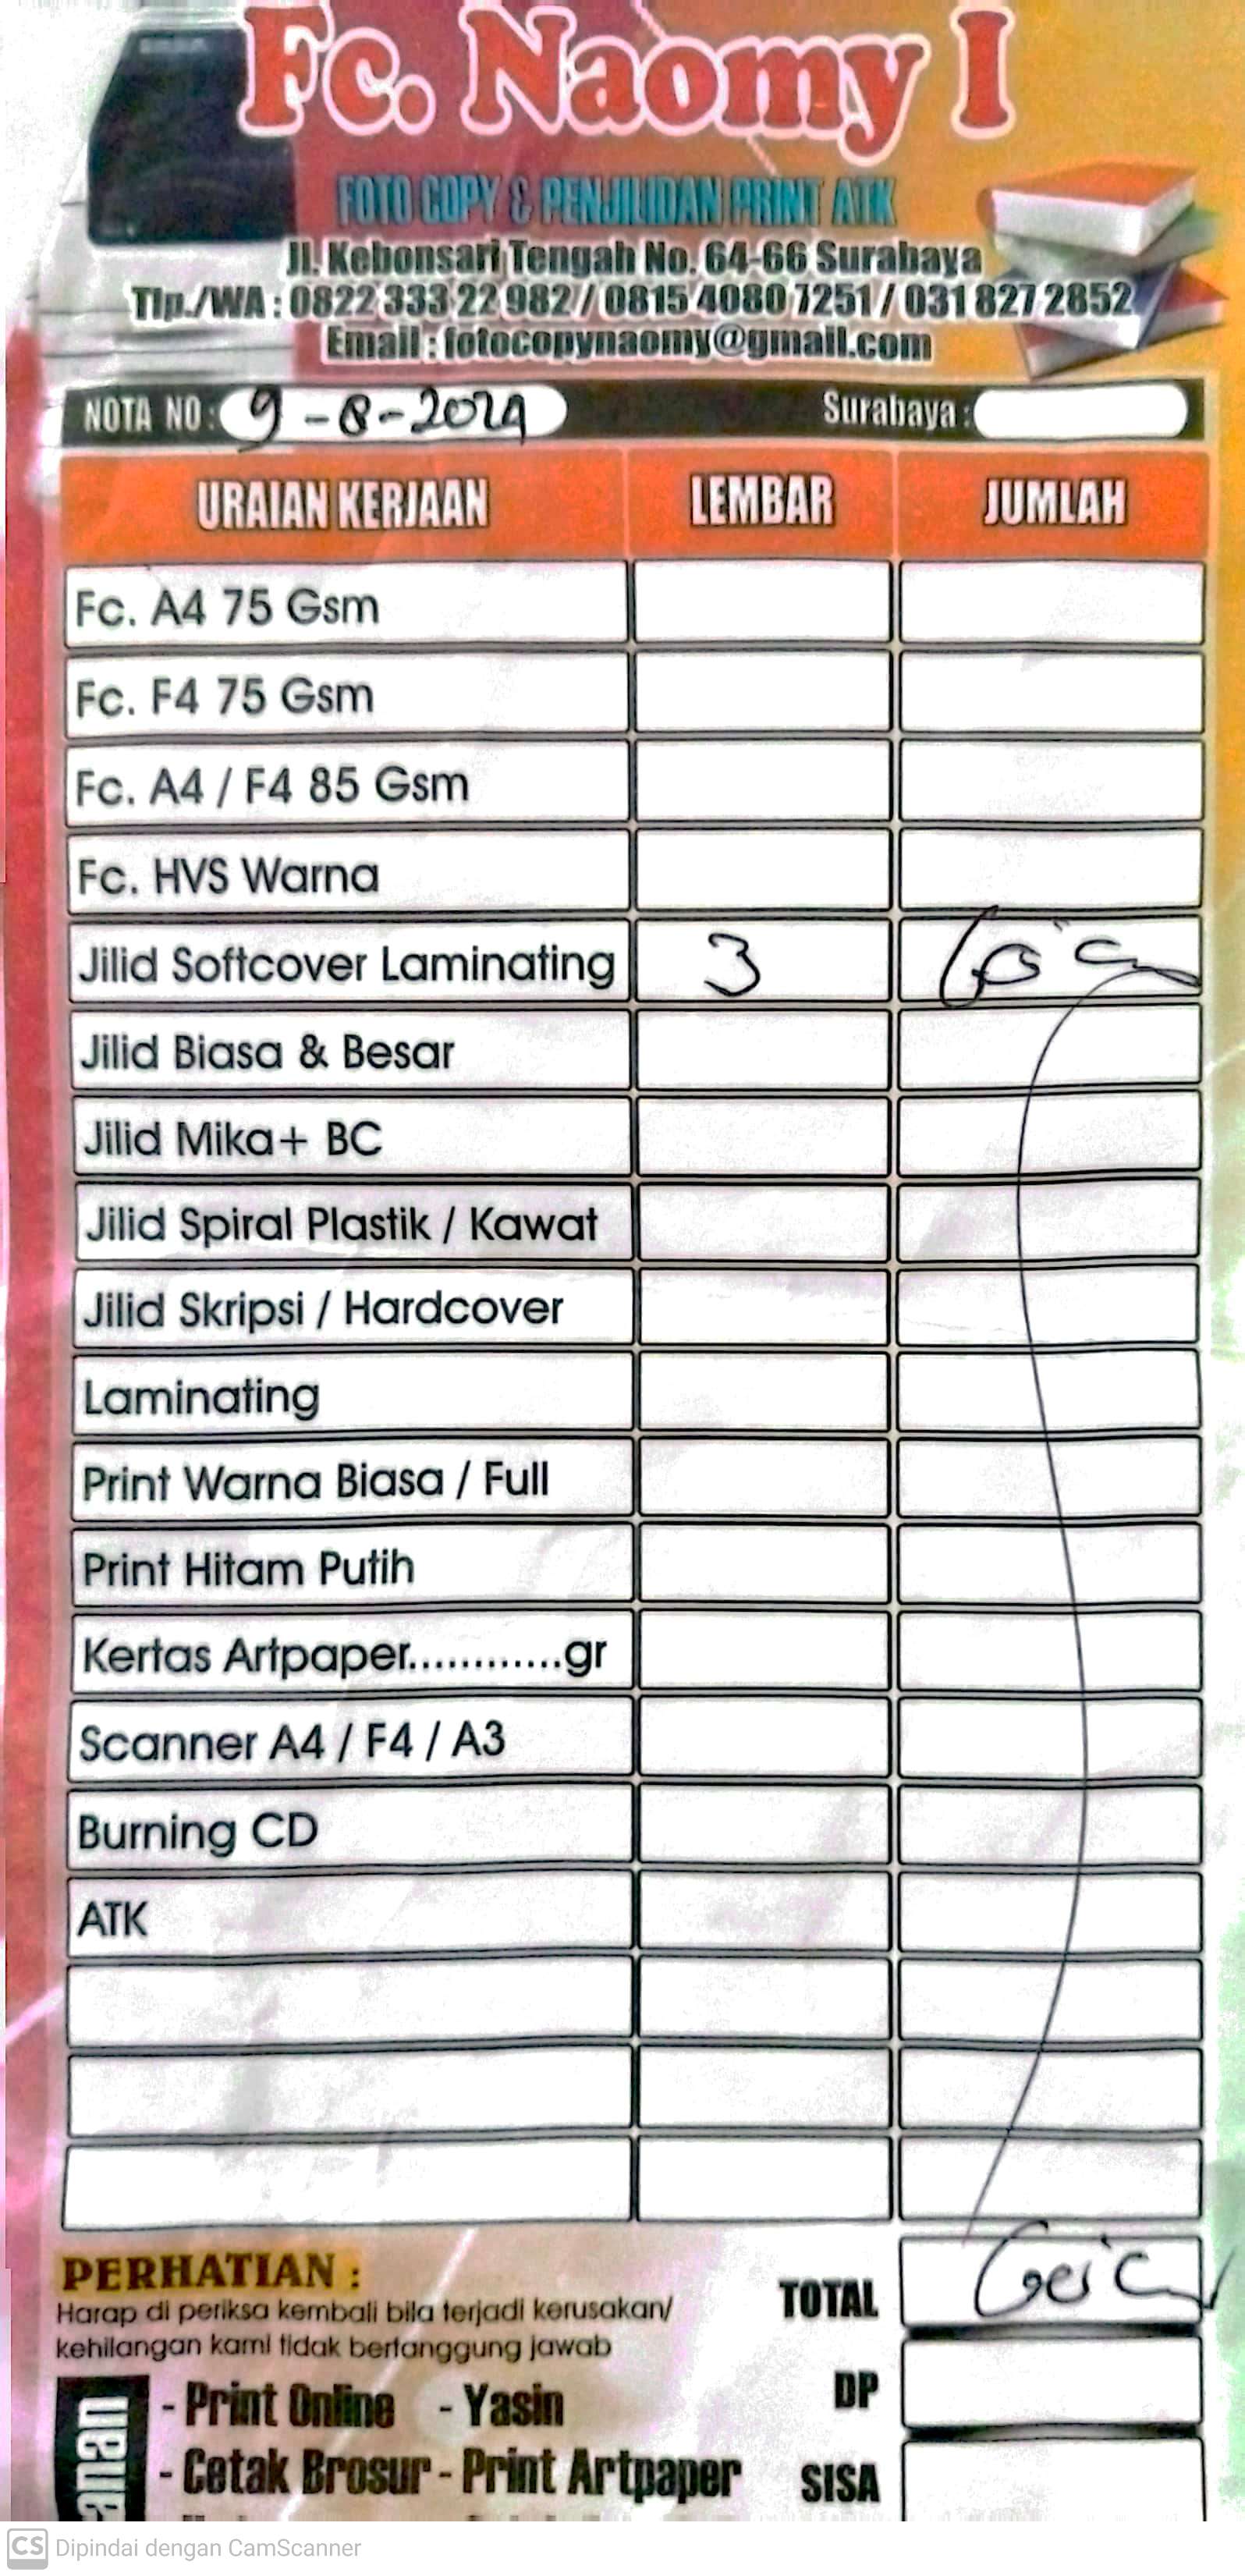 Fc. Naomy I
FOTO COPY & PENJILIDAN PRINT ATK
Jl. Kebonsari Tengah No. 64-66 Surabaya
Tlp./WA : 0822 333 22 982 / 0815 4080 7251 / 031 827 2852
Email : fotocopynaomy@gmail.com
NOTA NO : 9-8-2024 Surabaya :
URAIAN KERJAAN LEMBAR JUMLAH
Fc. A4 75 Gsm
Fc. F4 75 Gsm
Fc. A4 / F4 85 Gsm
Fc. HVS Warna
Jilid Softcover Laminating 3
Jilid Biasa & Besar
Jilid Mika+ BC
Jilid Spiral Plastik / Kawat
Jilid Skripsi / Hardcover
Laminating
Print Warna Biasa / Full
Print Hitam Putih
Kertas Artpaper............gr
Scanner A4 / F4 / A3
Burning CD
ATK
PERHATIAN :
Harap di periksa kembali bila terjadi kerusakan/
kehilangan kami tidak bertanggung jawab
TOTAL
DP
SISA
- Print Online - Yasin
- Cetak Brosur - Print Artpaper
CS Dipindai dengan CamScanner